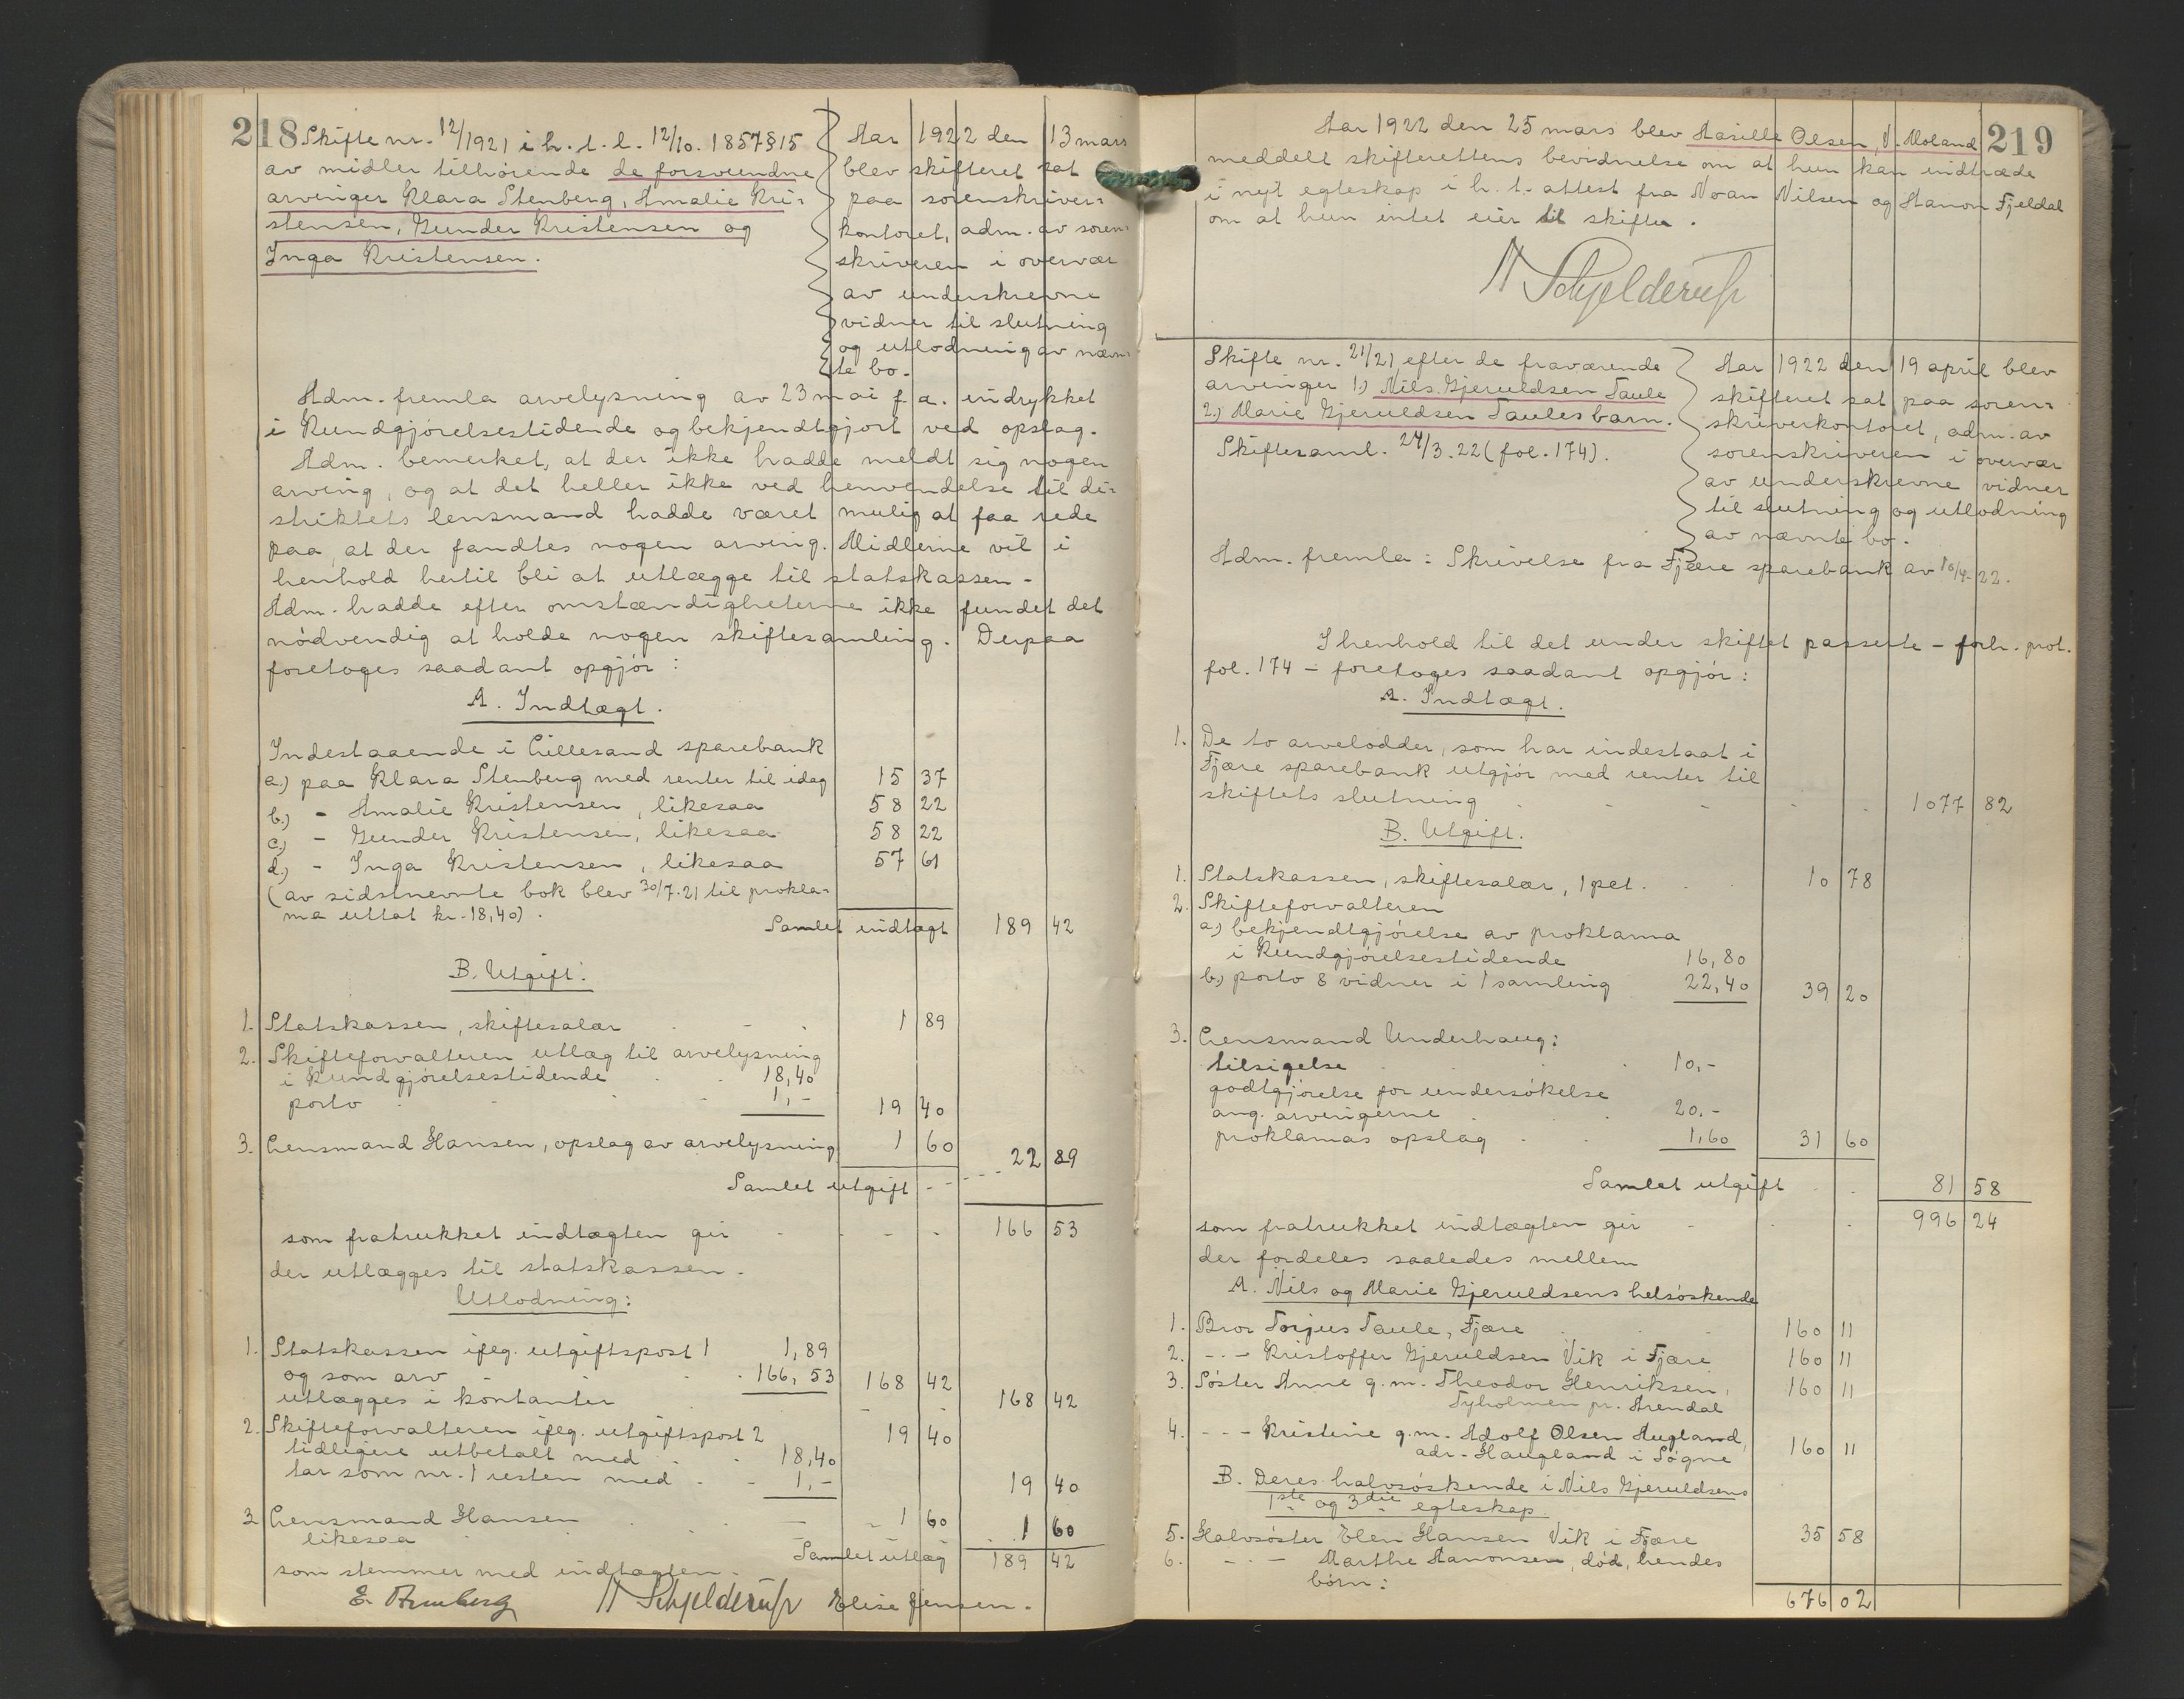 218
Skifte nr. 12/1921 i h. t. l. 12/10. 1857 § 15
av midler tilhørende de forsvundne
arvinger Klara Stenberg, Amalie Kri-
stensen, Gunder Kristensen og
Inga Kristensen.
Aar 1922 den 13 mars
blev skifteret sat
paa sorenskriver-
kontoret, adm. av soren-
skriveren i overvær
av underskrevne
vidner til slutning
og utlodning av nævn-
te bo.
Adm. fremla arvelysning av 23 mai f. a. indrykket
i Kundgjørelsestidende og bekjendtgjort ved opslag.
Adm. bemerket, at der ikke hadde meldt sig nogen
arving, og at det heller ikke ved henvendelse til di-
striktets lensmand hadde været mulig at faa rede
paa, at der fandtes nogen arving. Midlerne vil i
henhold hertil bli at utlægge til statskassen.
Adm. hadde efter omstændigheterne ikke fundet det
nødvendig at holde nogen skiftesamling. Derpaa
foretoges saadant opgjør:
A. Indtægt.
Indestaaende i Lillesand sparebank
a.) paa Klara Stenberg med renter til idag 15 37
b.) - Amalie Kristensen, likesaa 58 22
c.) - Gunder Kristensen, likesaa 58 22
d.) - Inga Kristensen, likesaa 57 61
(av sidstnevnte bok blev 30/7.21 til prokla-
ma uttat kr. 18,40).
Samlet indtægt 189 42
B. Utgift:
1. Statskassen, skiftesalær 1 89
2. Skifteforvalteren utlæg til arvelysning
i Kundgjørelsestidende 18,40
porto 1,- 19 40
3. Lensmand Hansen, opslag av arvelysning 1 60
22 89
Samlet utgift
som fratrukket indtægten gir 166 53
der utlægges til statskassen.
Utlodning:
1. Statskassen iflg. utgiftspost 1 1,89
og som arv 166,53 168 42
utlægges i kontanter 168 42
2. Skifteforvalteren iføg. utgiftspost 2 19 40
tidligere utbetalt med 18,40
tar som nr. 1 resten med 1,- 19 40
3. Lensmand Hansen 1 60 1 60
likesaa
Samlet utlæg 189 42
som stemmer med indtægten.
N Schjelderup Elise Jensen.
219
Aar 1922 den 25 mars blev Aasille Olsen, V. Moland
meddelt skifterettens bevidnelse om at hun kan indtræde
i nyt egteskap i h. t. attest fra Noan Nilsen og Aanon Fjeldal
om at hun intet eier til skifte.
N Schjelderup
Skifte nr. 21/21 efter de fraværende
arvinger 1.) Nils Gjeruldsen Taule
2.) Marie Gjeruldsen Taules barn.
Skiftesaml. 24/3.22 (fol. 174).
Aar 1922 den 19 april blev
skifteret sat paa soren-
skriverkontoret, adm. av
sorenskriveren i overvær
av underskrevne vidner
til slutning og utlodning
av nævnte bo.
Adm. fremla: Skrivelse fra Fjære sparebank av 10/4.22.
I henhold til det under skiftet passerte - forh. prot.
fol. 174 - foretoges saadant opgjør:
A. Indtægt.
1. De to arvelodder, som har indestaat i
Fjære sparebank utgjør med renter til
skiftets slutning 1077 82
B. Utgift.
1. Statskassen, skiftesalær, 1 pct. 10 78
2. Skifteforvalteren
a) bekjendtgjørelse av proklama
i Kundgjørelsestidende 16,80
b.) porto & vidner i 1 samling 22,40 39 20
3. Lensmand Underhaug:
tilsigelse 10.-
godtgjørelse for undersøkelse
ang. arvingerne 20.-
proklamas opslag 1,60 31 60
Samlet utgift 81 58
som fratrukket indtægten gir 996 24
der fordeles saaledes mellem
A. Nils og Marie Gjeruldsens helsøskende
1. Bror Torjus Taule, Fjære 160 11
2. - - - Kristoffer Gjeruldsen Vik i Fjære 160 11
3. Søster Anne g. m. Theodor Henriksen, 160 11
Tyholmen pr. Arendal
4. - - - Kristine g. m. Adolf Olsen Augland,
adr. Haugland i Søgne 160 11
B. Deres halvsøskende i Nils Gjeruldsens
1ste og 3die egteskap
5. Halvsøster Elen Hansen Vik i Fjære 35 58
6. - - - Marthe Aanonsen, død, hendes
børn:
676 02